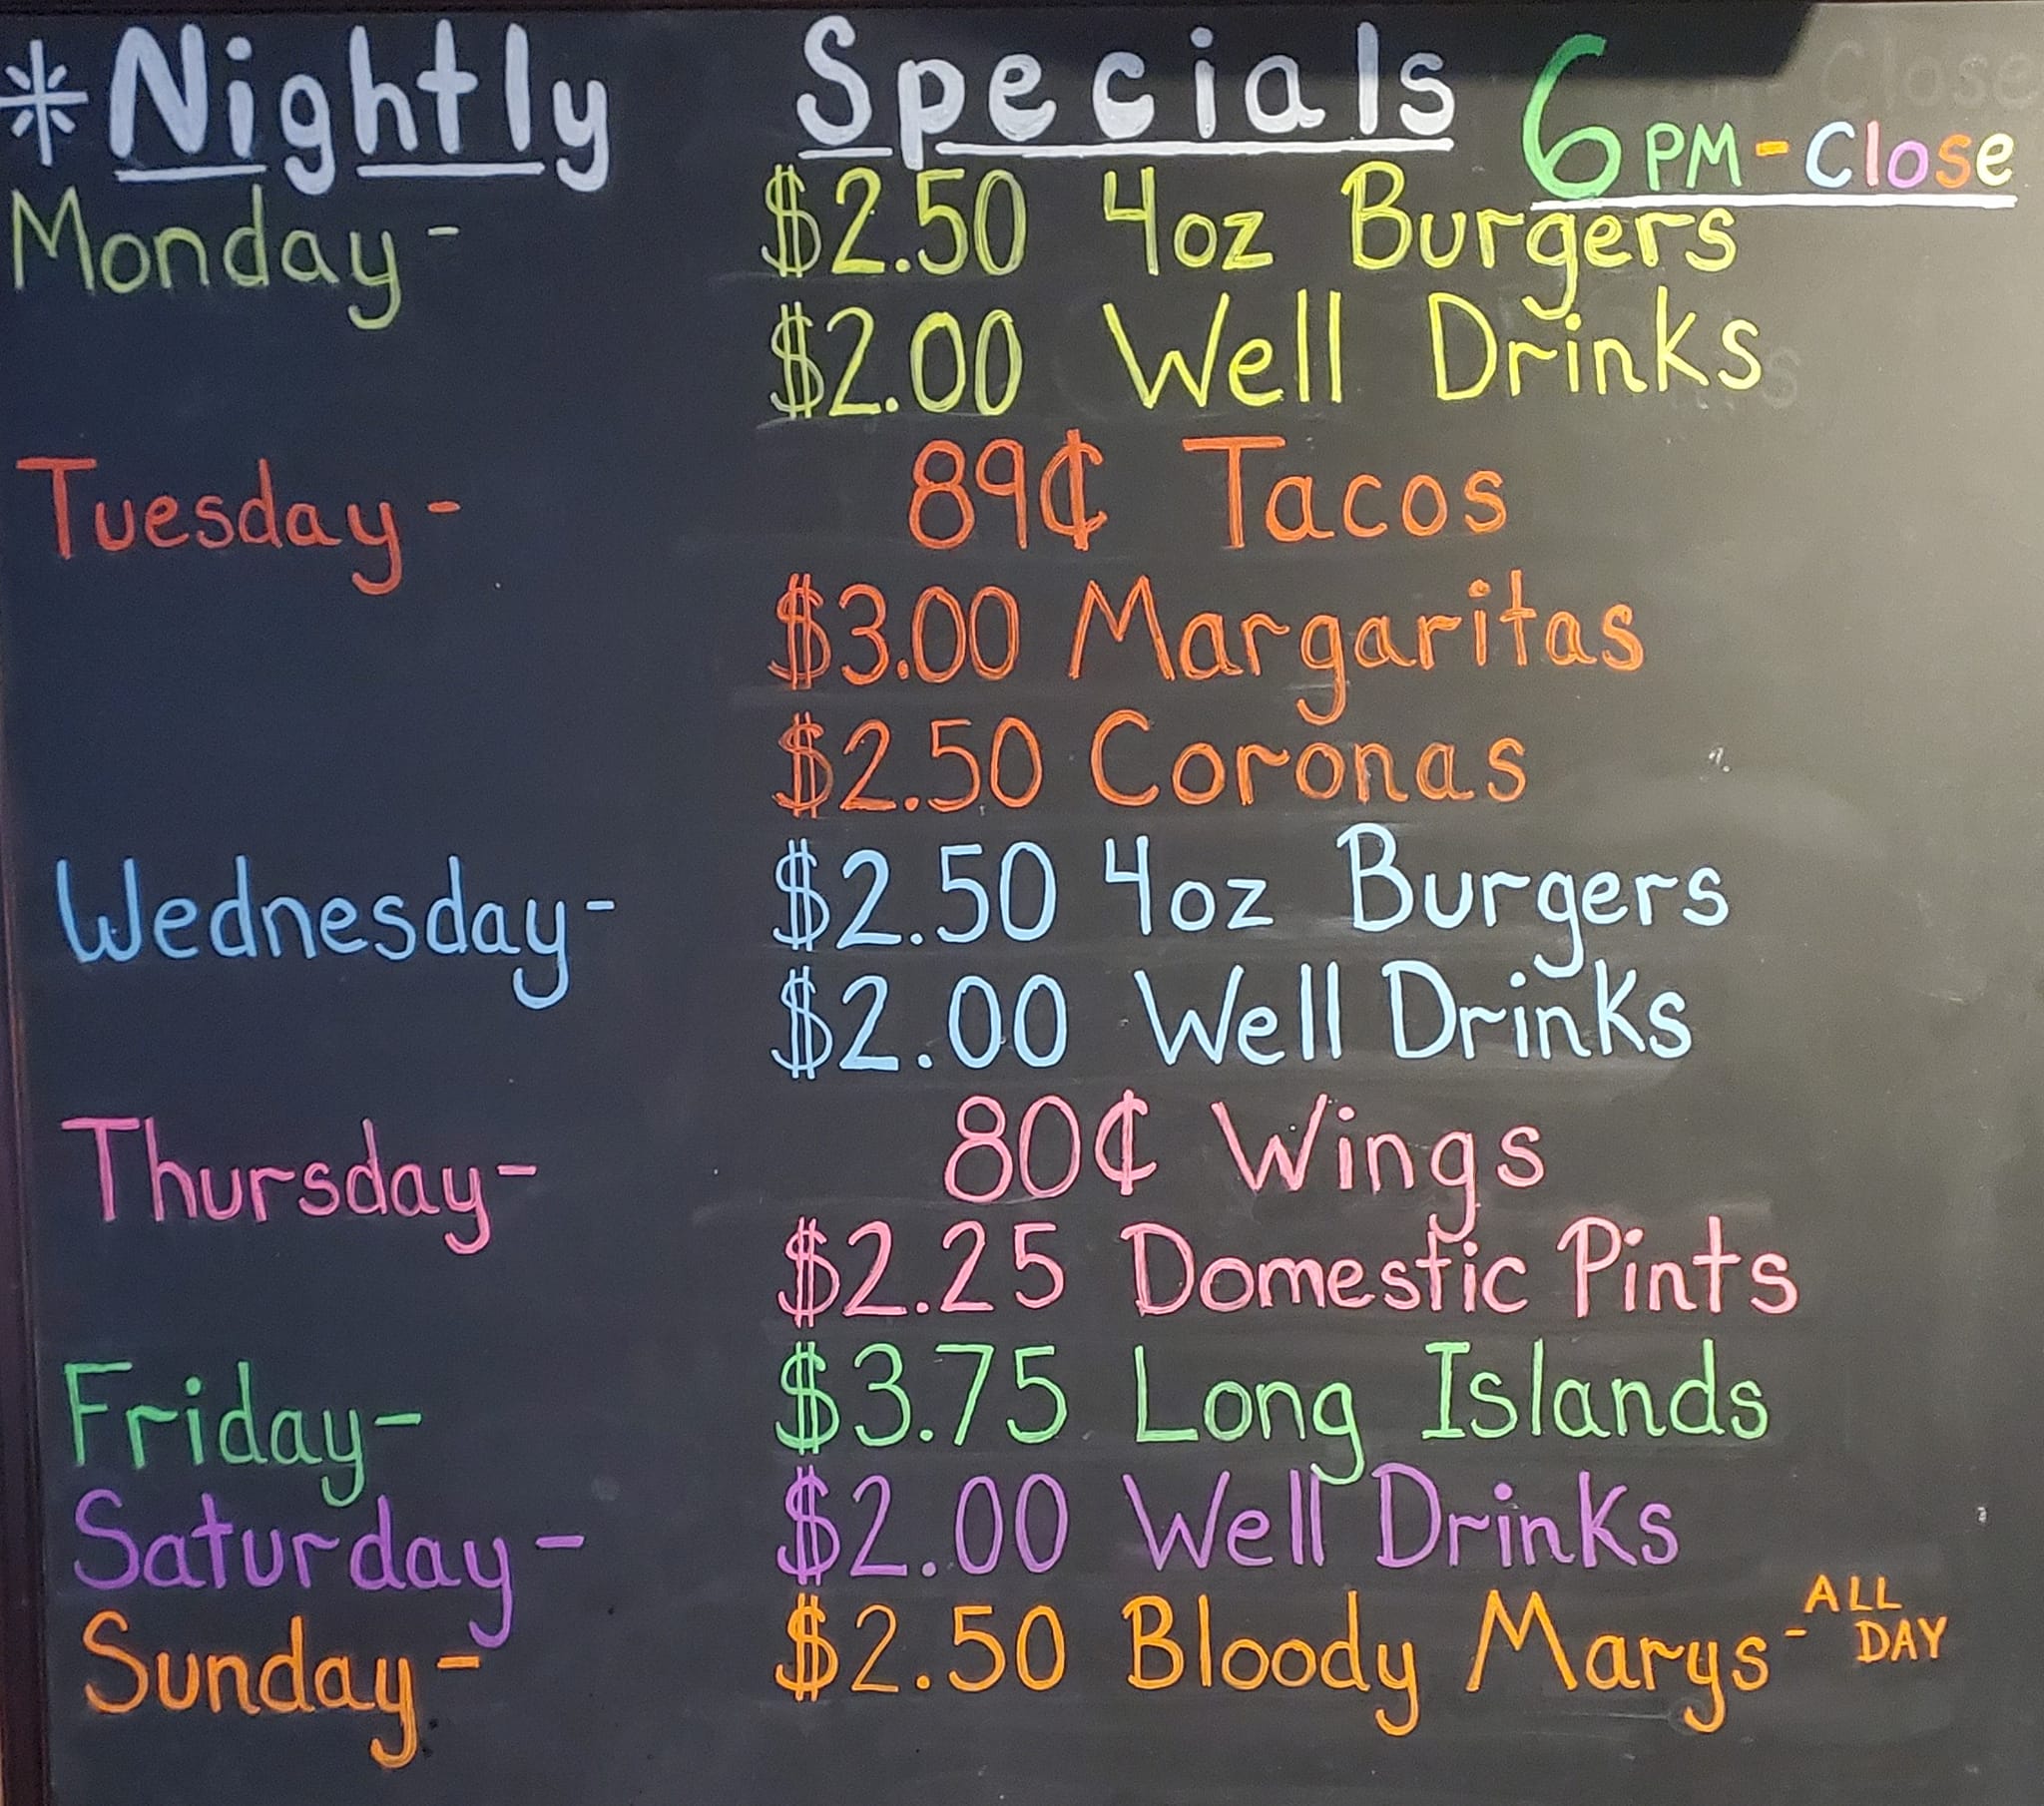 *Nightly Specials 6PM-Close
Monday- $2.50 4oz Burgers
$2.00 Well Drinks
Tuesday- 89¢ Tacos
$3.00 Margaritas
$2.50 Coronas
Wednesday- $2.50 4oz Burgers
$2.00 Well Drinks
Thursday- 80¢ Wings
$2.25 Domestic Pints
Friday- $3.75 Long Islands
Saturday- $2.00 Well Drinks
Sunday- $2.50 Bloody Marys- ALL DAY